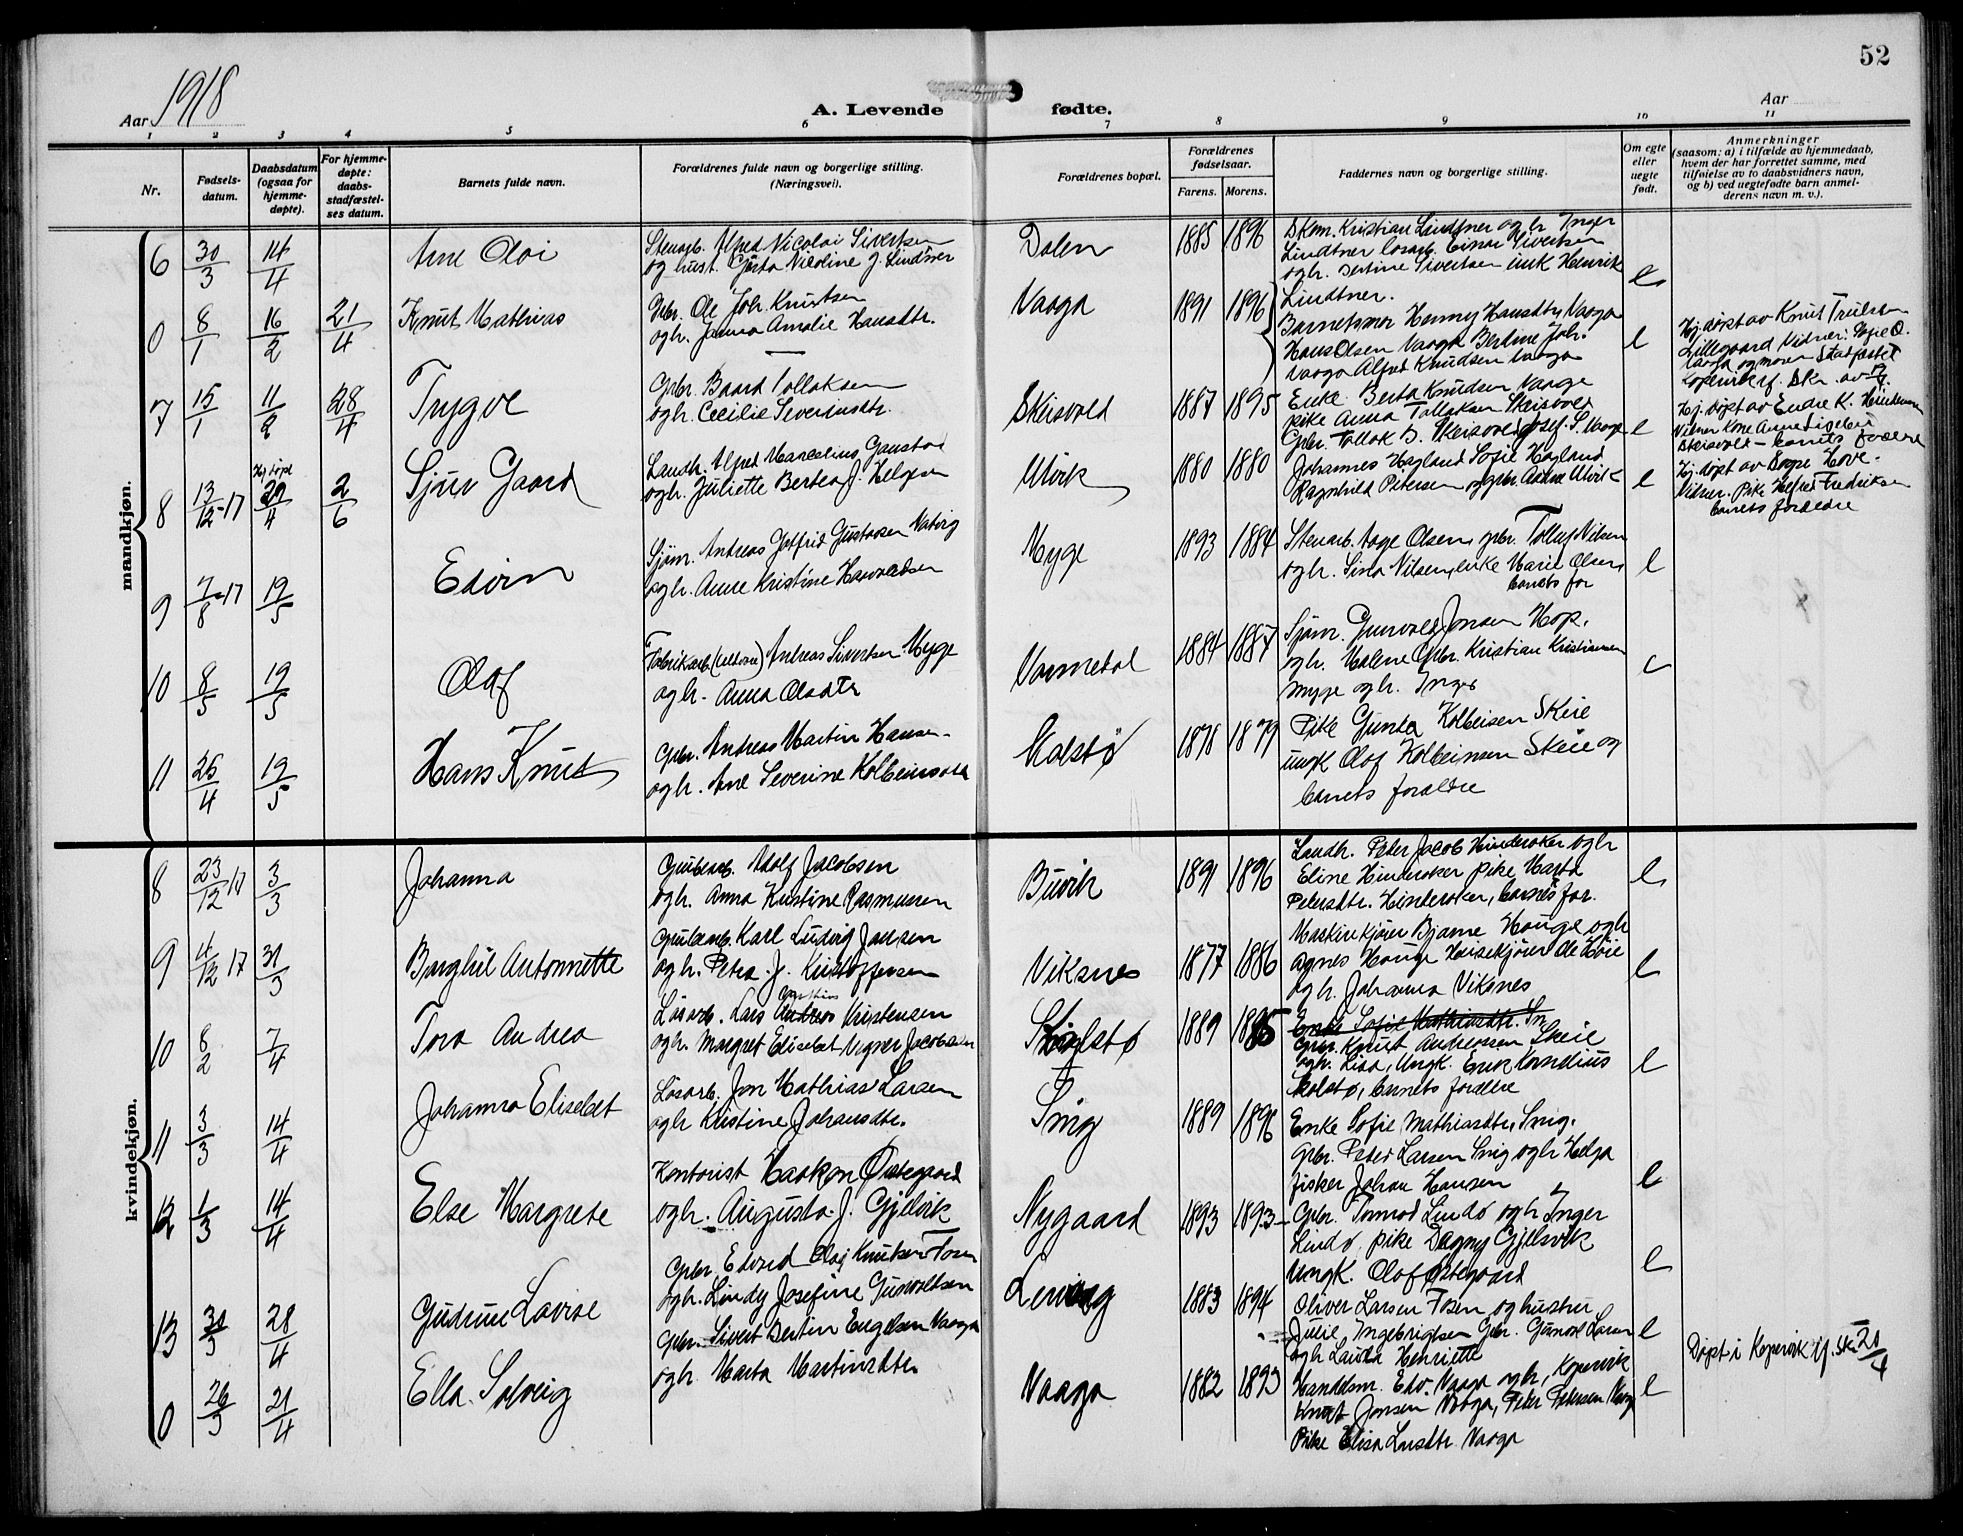 52
Aar 1918
A. Levende fødte.
Aar
1 2 3 4 5 6 7 8 9 10 11
Nr.
Fødsels-
datum.
Daabsdatum
(ogsaa for
hjemme-
døpte).
For hjemme-
døpte:
daabs-
stadfæstel-
ses datum.
Barnets fulde navn.
Forældrenes fulde navn og borgerlige stilling.
(Næringsvei).
Forældrenes bopæl.
Forældrenes
fødselsaar.
Farens. Morens.
Faddernes navn og borgerlige stilling.
Om egte
eller
uegte
født.
Anmerkninger
(saasom: a) i tilfælde av hjemmedaab,
hvem der har forrettet samme, med
tilføielse av to daabsvidners navn,
og b) ved uegtefødte barn anmel-
derens navn m. v.).
mandkjøn.
6 30/3 14/4 Arne Olai
Stenarb. Alfred Nicolai Sivertsen
og hust. Nicoline J. Lindtner
Dalen 1885 1896
Skom. Kristian Lindtner og h. Inger
Lindtner løsarb. Einar Sivertsen
og h. Bertine Sivertsen unk Henrik
Lindtner.
e
0 8/1 16/2 21/4 Knut Mathias
Gbr. Ole Joh. Knutsen
og h. Amalie Hansdtr.
Vaaga 1891 1896
Barnets mor Henny Hansdtr Vaaga
Hans Olsen Vaaga Bertine Joh.
Vaaga Alfred Knudsen Vaaga
e
Hj. døpt av Knut Truelsen
Lillegaard Vidner: Sofie O.
Vaaga og moren Stadfæstet
Kopervik
7 15/1 11/2 28/4 Trygve
Gbr. Baard Tollaksen
og h. Cecilie Severinsdtr.
Skeisvold 1887 1895
Enke Berta Knudsen Vaage
pike Anna Tollaksen Skeisvold
Gbr. Tollak B. Skeisvold Josef S. Vaage
e
Hj. døpt av Endre K.
Vidner Kone Anne
Skeisvold - barnets forældre
8 13/12-17 Hj. døpt 29/4 2/6 Sjur Gaard
Landh. Alfred Marcelius Gaustad
og h. Juliette Bertea J. Helgesen
Utvik 1880 1880
Johannes Hagland Sofie Hagland
Ragnhild Petersen og gbr. Andreas Utvik
e
Hj. døpt av Hove.
Vidner. Pike Fredriksen
barnets forældre
9 7/8-17 19/5 Edvin
Sjøm. Andreas Gotfrid Gustavsen Natvig
og h. Anne Kristine Haraldsen
Myge 1893 1884
Stenarb. Aage Olsen, gbr. Tolluf Nilsen
og h. Sisla Nilsen, enke Marie Olsen,
barnets far
e
10 8/5 19/5 Olaf
Fabrikarb. Andreas Sivertsen Myge
og h. Anna Olsdtr
Vormedal 1884 1887
Sjøm. Gunvald Jonsen Hop.
og h. Malene Gbr. Kristian Kristiansen
Myge og h. Inger
e
11 25/4 19/5 Hans Knut
Gbr. Andreas Martin Hansen
og h. Ane Severine Kolbeinsdtr
Stolstø 1878 1879
Pike Gunda Kolbeinsen Skeie
ungk Olaf Kolbeinsen Skeie og
barnets forældre
kvindekjøn.
8 23/12 17 3/3 Johanna
Grubearb. Adolf Jacobsen
og h. Anna Kristine Rasmussen
Buvik 1891 1896
Landh. Peter Jacob Hinderaker og h
Eline Hinderaker pike Marta
Petersdtr. Hinderaker, barnets far.
e
9 4/12 17 31/3 Borghil Antonnette
Grubearb. Karl Ludvig Jansen
og h. Petra J. Kristoffersen
Viksnes 1877 1886
Maskinkjører Bjarne Hauge og h
Agnes Hauge Heisekjører Ole Høie
og h. Johanna Viksnes
e
10 8/2 7/4 Tora Andrea
Løsarb. Lars Andreas Kristensen
og h. Margret Elisebet Jacobsen
Stolstø 1889 1885
Enke Sofie Mathiasdtr. Sn
Gbr. Knut Andreassen Skeie
og h. Lisa, Ungk. Enok Kornelius
Stolstø, barnets forældre
e
11 3/3 14/4 Johanna Elisebet
Løsarb. Jon Mathias Larsen
og h Kristine Johansdtr.
Snig 1889 1896
Enke Sofie Mathiasdtr. Snig.
Gbr. Peder Larsen Snig og h Helga
fisker Johan Hansen
e
12 1/3 14/4 Else Margrete
Kontorist Haakon Østegaard
og h. Augusta J. Gjilvik
Nygaard 1893 1893
Gbr. Tormod Lindø og h. Inger
Lindø, pike Dagny Gjellsvik
Ungk. Olaf Østegaard
e
13 30/3 28/4 Gudrun Lovise
Gbr. Edvard Olaj Knutsen Fosen
og h. Lindy Josefine Gunvaldsen
1883 1894
Oliver Larsen Fosen og hustru
Julie, Ingebrigtsen Gbr. Gunval Larsen
og h Henriette
e
0 26/3 21/4 Ella Solveig
Gbr. Sivert Bertin Engelsen Vaaga
og h. Marta Martinsdtr
Vaaga 1882 1893
Handelsm. Edv. Vaaga og h, Kopervik
Knut Jonsen Vaaga, Peter Petersen Vaaga
Pike Elisa Larsdtr. Vaaga
e
Døpt i Kopervik if. Skr 21/4